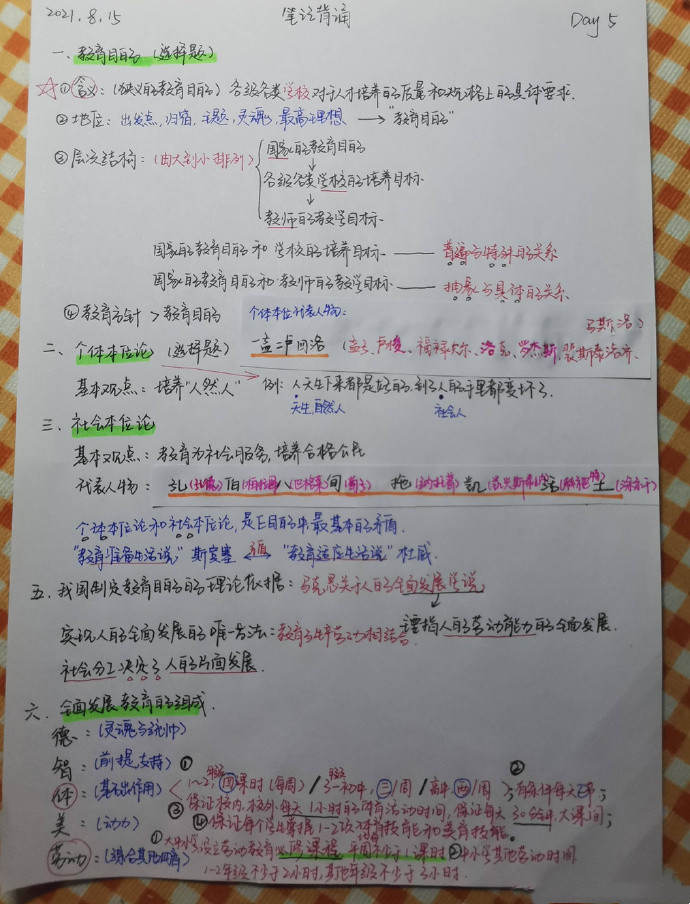 2021.8.15 笔记背诵 Day 5
一、教育目的 (选择题)
☆①含义:(狭义的教育目的) 各级各类学校对于人才培养的质量和规格上的具体要求.
②地位:出发点,归宿,主题,灵魂,最高理想 → "教育目的"
③层次结构:(由大到小排列) 国家的教育目的
↓
各级各类学校的培养目标
↓
教师的教学目标
国家的教育目的和学校的培养目标 —— 普遍与特殊的关系
国家的教育目的和教师的教学目标 —— 抽象与具体的关系
④教育方针 > 教育目的 个体本位代表人物:
马斯洛)
二、个体本位论 (选择题) 孟二卢回洛 (孟子、卢梭、福禄贝尔、洛克、罗杰斯,裴斯泰洛齐、
基本观点:培养"自然人" 例:人天生下来都是好的,到了人的手里都变坏了.
天生,自然人 社会人
三、社会本位论
基本观点:教育为社会服务,培养合格公民
代表人物:
个体本位论和社会本位论,是目的中最基本的矛盾.
"教育准备生活说" 斯宾塞 "教育适应生活说" 杜威
五.我国制定教育目的的理论依据:马克思关于人的全面发展学说
↓
实现人的全面发展的唯一方法:教育与生产劳动相结合. 主要指人的劳动能力的全面发展.
社会分工决定了人的片面发展.
六、全面发展教育的组成.
德:(灵魂与统帅)
智:(前提,支持)
体:(基础作用) ①1~2,四课时(每周) / 3~初中,三/周 / 高中,两/周 ②;有条件每天1节;
③保证校内,校外,每天1小时的体育活动时间,保证每天30分钟,大课间;
美:(动力) ④保证每个学生掌握1-2项体育技能和美育技能。
劳动:(综合其他四育) ①大中小学设立劳动教育必修课程 每周不少于1课时 ②中小学其他劳动时间
1-2年级不少于2小时,其他年级不少于3小时.